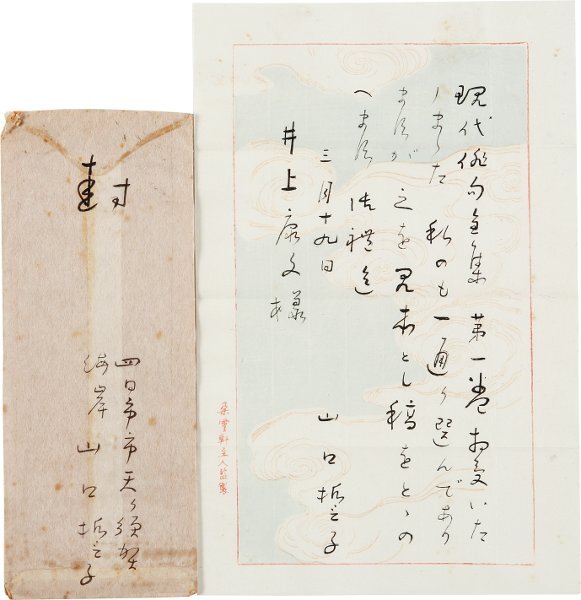 現代俳句全集 第一巻お受いた
しました 私のも一通り選んであり
ますが 之を見本とし稿をとゝの
へます 御禮迄
三月十九日
山口誓子
井上康文様
朶雲軒主人監製
封
四日市市天ヶ須賀
海岸 山口誓子